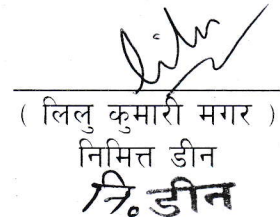 ( लिलु कुमारी मगर )
निमित्त डीन
नि. डीन